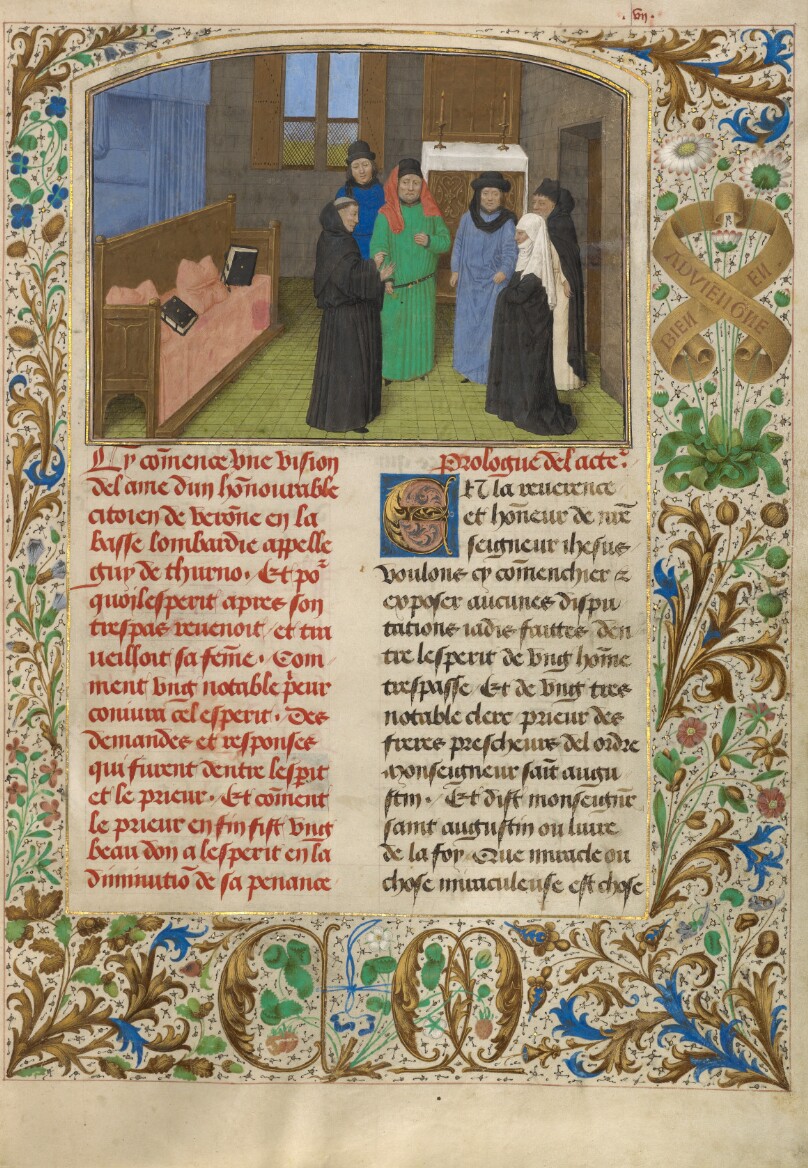 .vii.
Cy cõmence vne vision
del ame dun hõnourable
citoien de verõne en la
basse lombardie appelle
guy de thurno. Et põ
quoy lesperit apres son
trespas reuenoit et tra
ueilloit sa fẽme. Com
ment vng notable p̃eur
coniura cel esperit. Des
demandes et responses
qui furent dentre lesp̃it
et le prieur. Et cõment
le prieur en fin fist vng
beau don a lesperit en la
diminutiõ de sa penance
Prologue del acte.
Et la reuerence
et hõneur de nr̃e
seigneur ihesus
voulons cy cõmenchier &
exposer aucunes dispu
tations iadis faittes den
tre lesperit de vng hõme
trespasse. Et de vng tres
notable clerc prieur des
freres prescheurs del ordre
monseigneur sait augu
stin. Et dist monseignr̃
saint augustin ou liure
de la foy. Que miracle ou
chose miraculeuse est chose
BIEN
EN
ADVIENGNE
C M